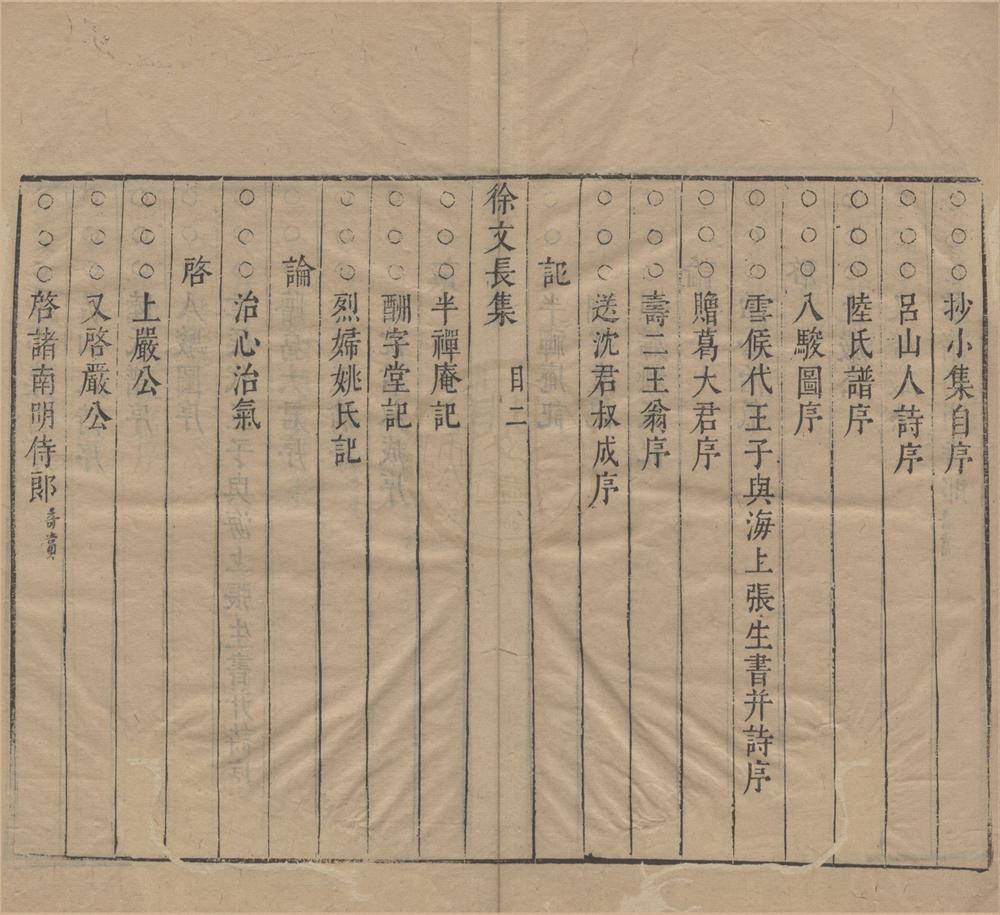 ○○○抄小集自序
○○○呂山人詩序
○○○陸氏譜序
○○○八駿圖序
○○○雲候代王子與海上張生書并詩序
○○○贈葛大君序
○○○壽二王翁序
○○○送沈君叔成序
記
徐文長集 目 二
○○○半禪庵記
○○○酬字堂記
○○○烈婦姚氏記
論
○○○治心治氣
啓
○○○上嚴公
○○○又啓嚴公
○○○啓諸南明侍郎 奇賞